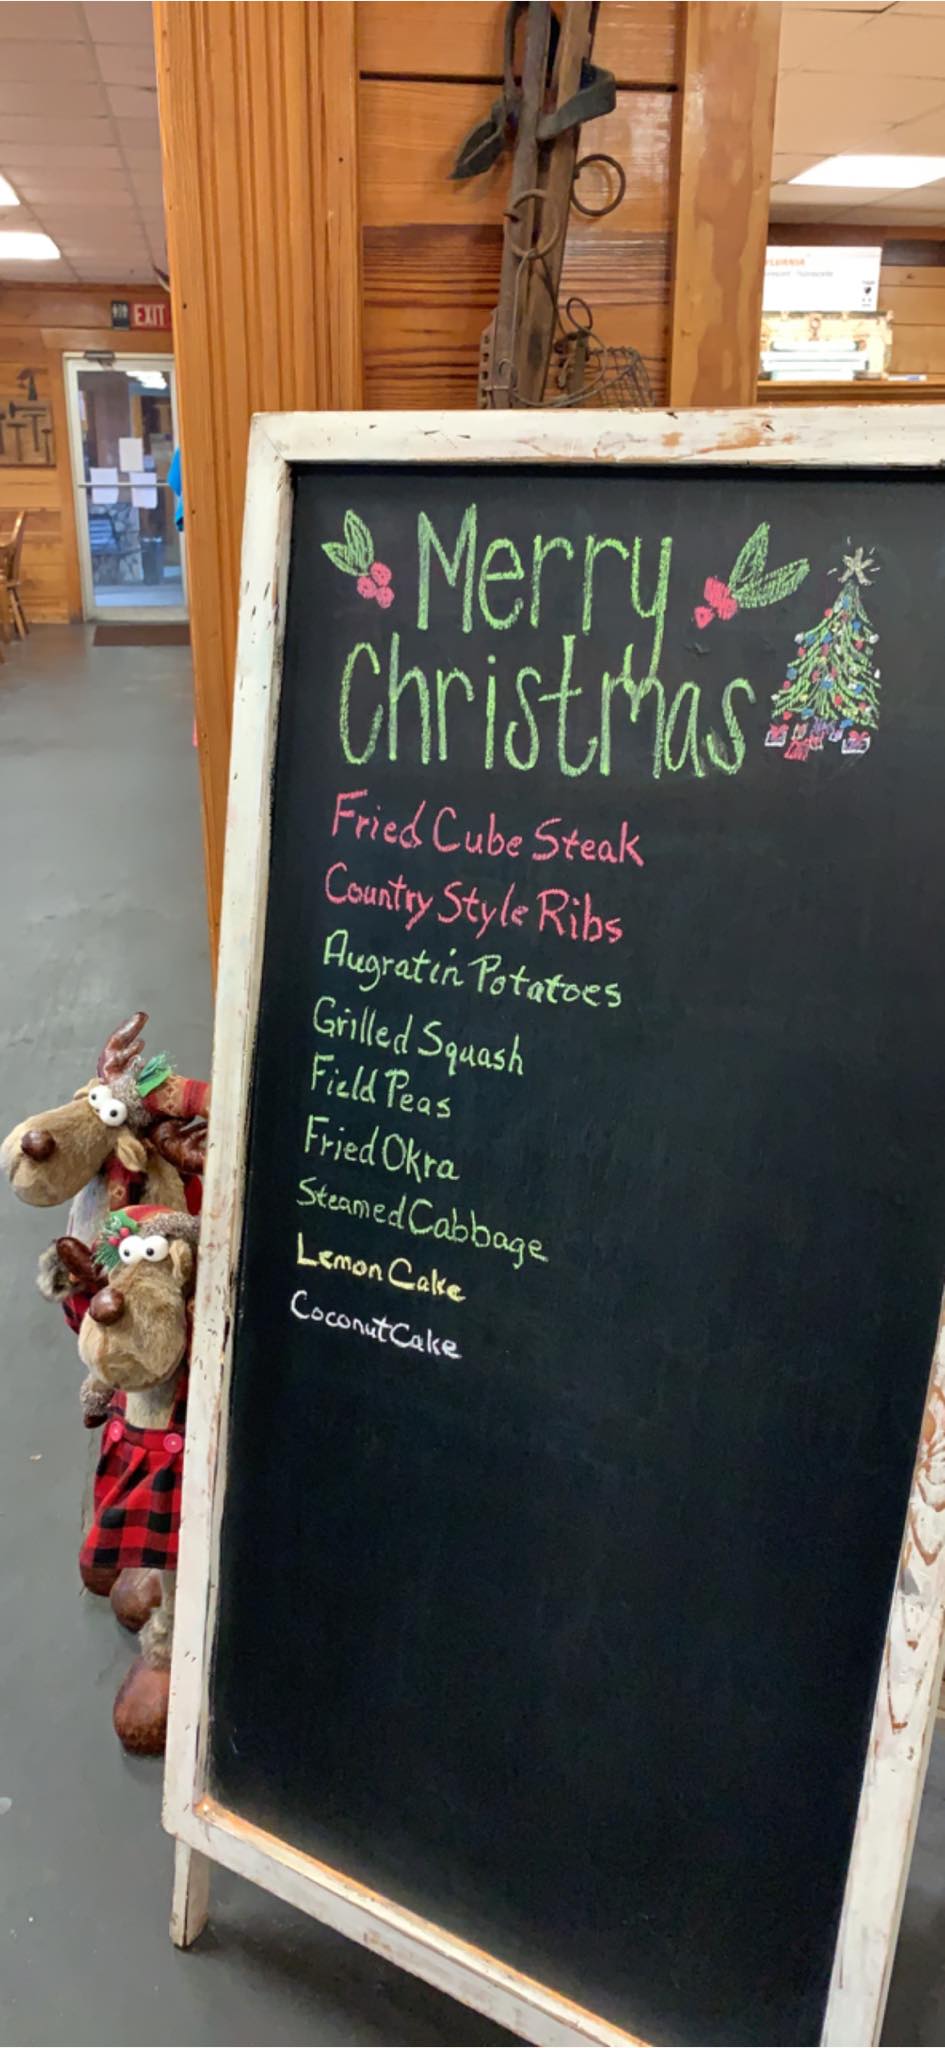 EXIT
Merry
Christmas
Fried Cube Steak
Country Style Ribs
Augratin Potatoes
Grilled Squash
Field Peas
Fried Okra
Steamed Cabbage
Lemon Cake
Coconut Cake